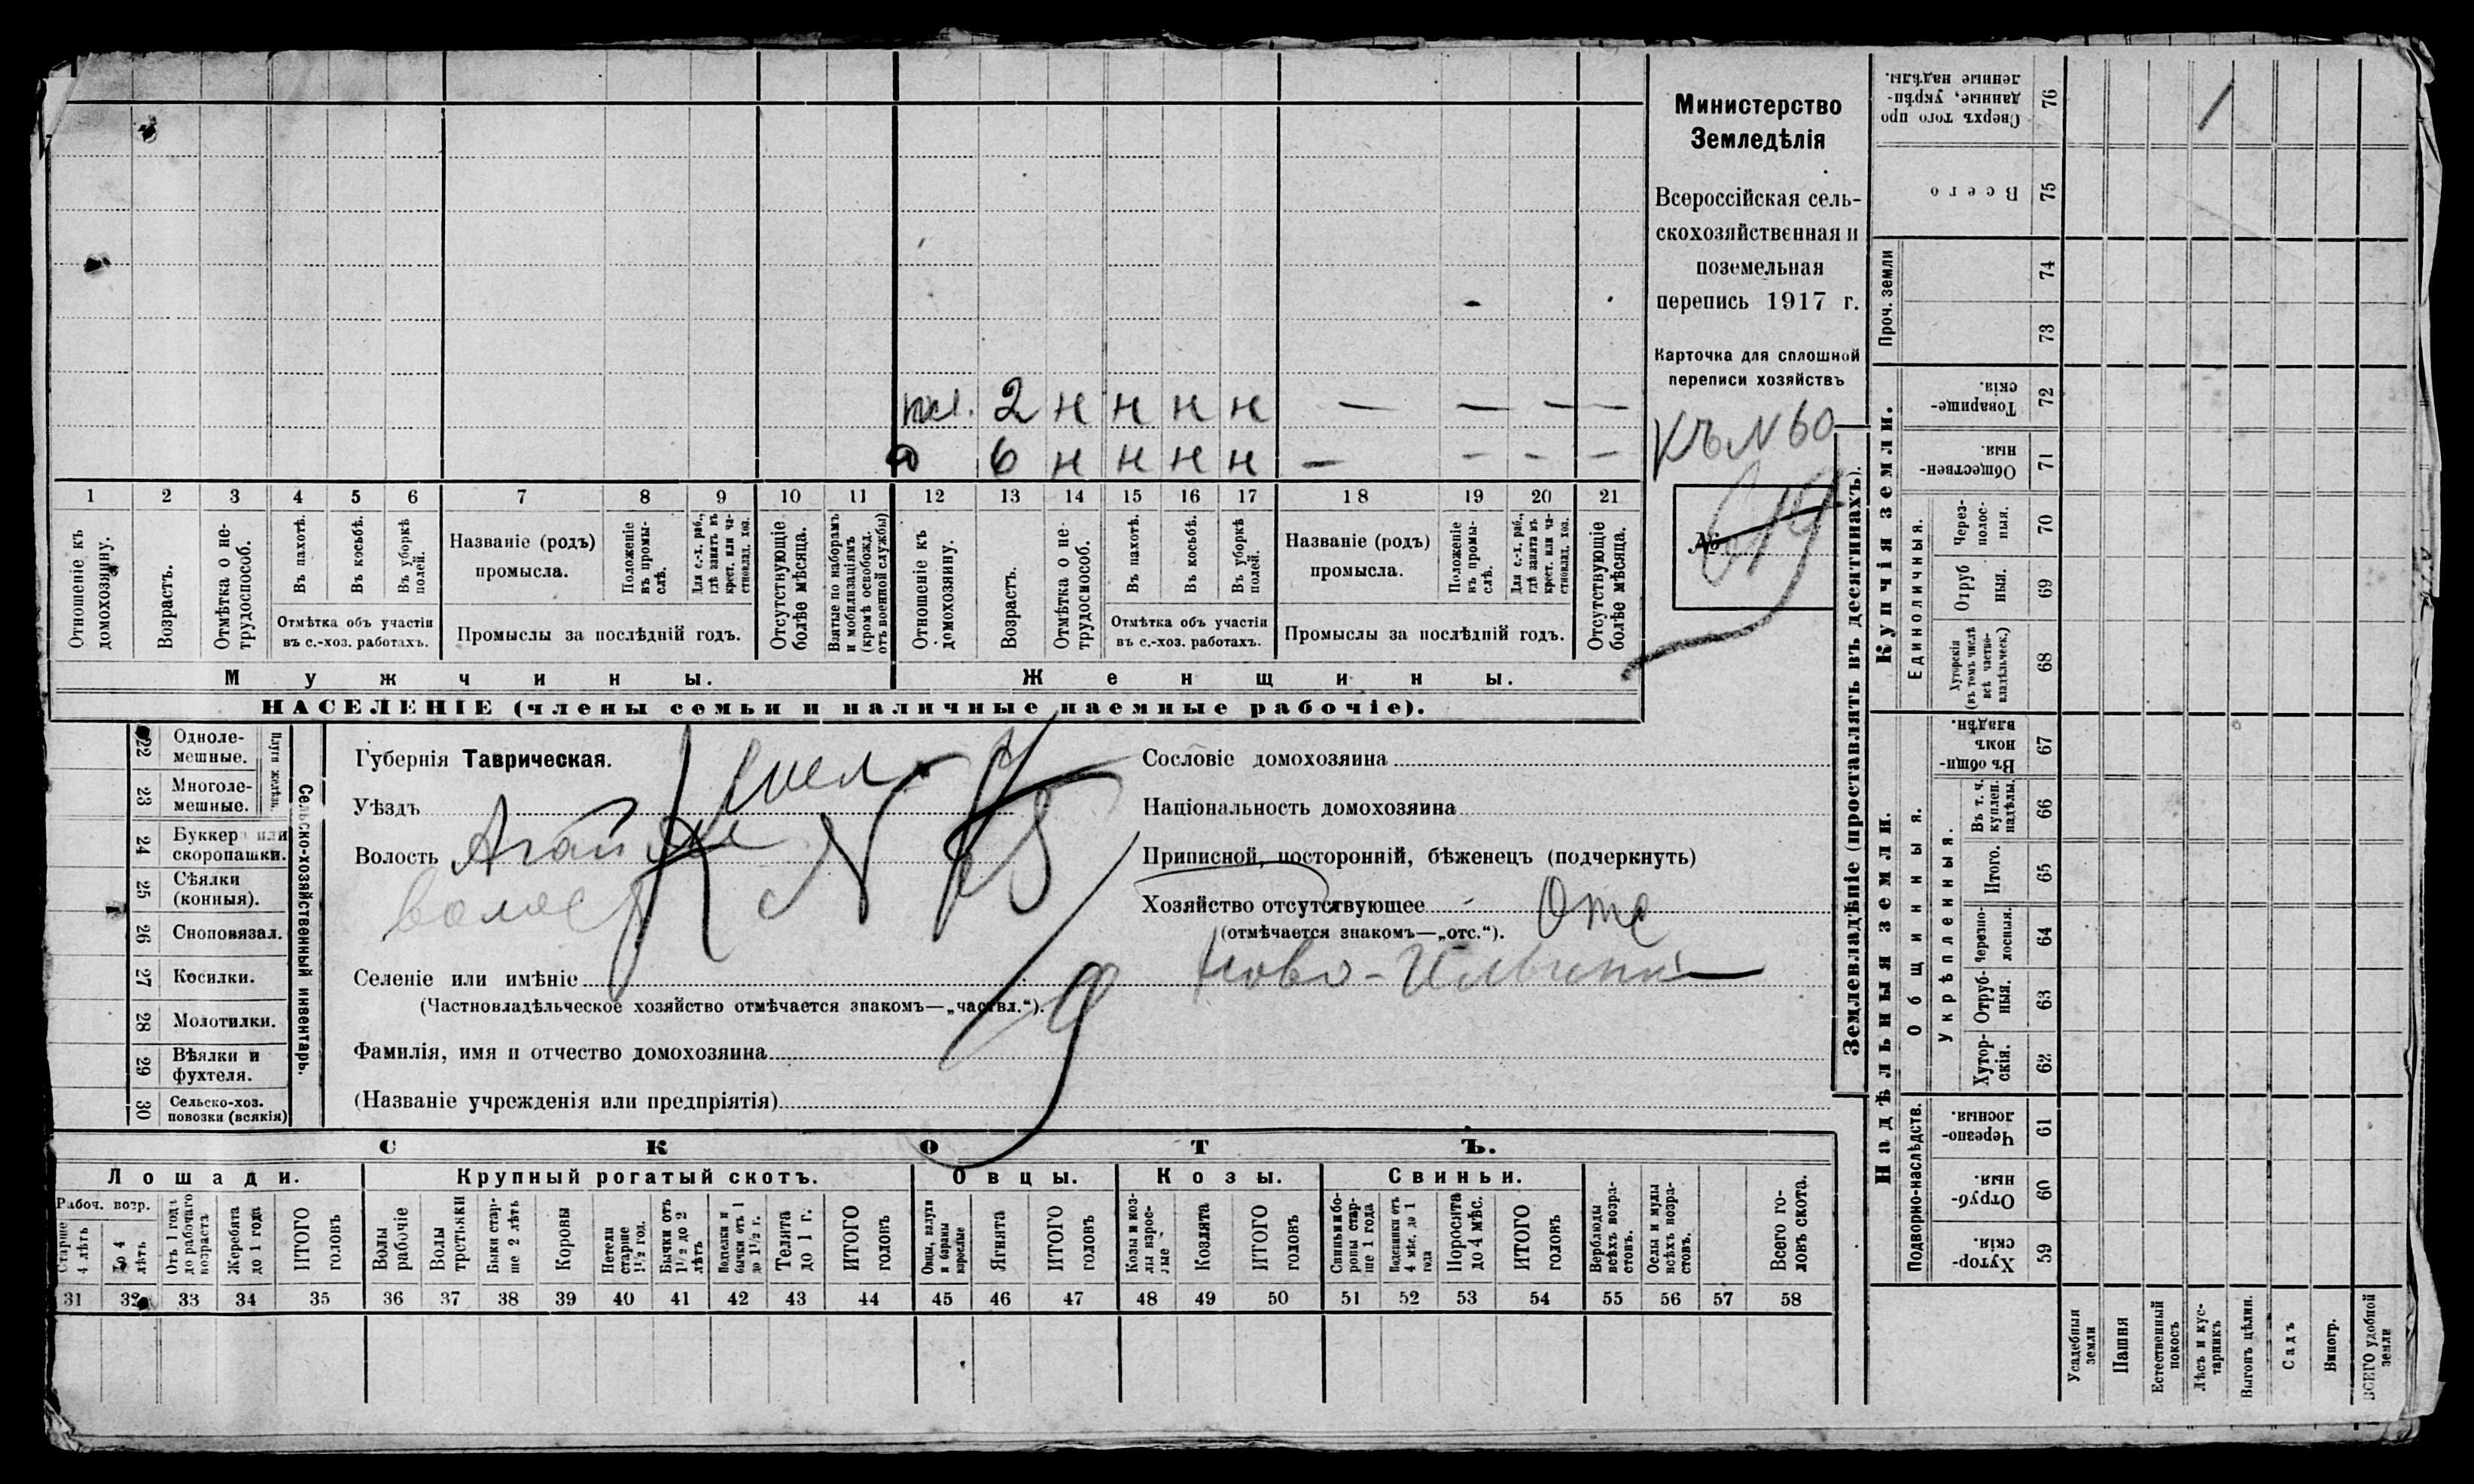 Министерство
Земледѣлія
Всероссійская сель-
скохозяйственная и
поземельная
перепись 1917 г.
Карточка для сплошной
переписи хозяйствъ
Къ N 60
№ 619
пл. 2 н н н н — — —
6 н н н н — - - —
1 2 3 4 5 6 7 8 9 10 11 12 13 14 15 16 17 18 19 20 21
Отношеніе къ домохозяину.
Возрастъ.
Отмѣтка о не-трудоспособ.
Въ пахотѣ.
Въ косьбѣ.
Въ уборкѣ полей.
Отмѣтка объ участіи
въ с.-хоз. работахъ.
Названіе (родъ)
промысла.
Положеніе въ промы-слѣ.
Для с.-х. раб., гдѣ занятъ въ крест. или ча-стновлад. хоз.
Промыслы за послѣдній годъ.
Отсутствующіе болѣе мѣсяца.
Взятые по наборамъ и мобилизаціямъ (кромѣ освобожд. отъ военной службы)
Отношеніе къ домохозяину.
Возрастъ.
Отмѣтка о не-трудоспособ.
Въ пахотѣ.
Въ косьбѣ.
Въ уборкѣ полей.
Отмѣтка объ участіи
въ с.-хоз. работахъ.
Названіе (родъ)
промысла.
Положеніе въ промы-слѣ.
Для с.-х. раб., гдѣ занята въ крест. или ча-стновлад. хоз.
Промыслы за послѣдній годъ.
Отсутствующіе болѣе мѣсяца.
Мужчины.
Женщины.
НАСЕЛЕНІЕ (члены семьи и наличные наемные рабочіе).
Сельско-хозяйственный инвентарь.
Плуги желѣзн.
22 Одноле-мешные.
23 Многоле-мешные.
24 Буккера или скоропашки.
25 Сѣялки (конныя).
26 Сноповязал.
27 Косилки.
28 Молотилки.
29 Вѣялки и фухтеля.
30 Сельско-хоз. повозки (всякія)
Губернія Таврическая.
Уѣздъ
Волость
Селеніе или имѣніе
(Частновладѣльческое хозяйство отмѣчается знакомъ—„частвл.“).
Фамилія, имя и отчество домохозяина
(Названіе учрежденія или предпріятія)
Сословіе домохозяина
Національность домохозяина
Приписной, посторонній, бѣженецъ (подчеркнуть)
Хозяйство отсутствующее Отс
(отмѣчается знакомъ—„отс.“).
СКОТЪ.
Лошади.
Крупный рогатый скотъ.
Овцы.
Козы.
Свиньи.
Рабоч. возр.
Старше 4 лѣтъ
До 4 лѣтъ
Отъ 1 года до рабочаго возраста
Жеребята до 1 года
ИТОГО головъ
Волы рабочіе
Волы третьяки
Быки стар-ше 2 лѣтъ
Коровы
Нетели старше 1½ год.
Бычки отъ 1½ до 2 лѣтъ
Подтелки и бычки отъ 1 до 1½ г.
Телята до 1 г.
ИТОГО головъ
Овцы, валухи и бараны взрослые
Ягнята
ИТОГО головъ
Козы и коз-лы взрос-лые
Козлята
ИТОГО головъ
Свиньи и бо-ровы стар-ше 1 года
Подсвинки отъ 4 мѣс. до 1 года
Поросята до 4 мѣс.
ИТОГО головъ
Верблюды всѣхъ возра-стовъ.
Ослы и мулы всѣхъ возра-стовъ.
Всего го-ловъ скота.
31 32 33 34 35 36 37 38 39 40 41 42 43 44 45 46 47 48 49 50 51 52 53 54 55 56 57 58
Землевладѣніе (проставлять въ десятинахъ).
Надѣльныя земли.
Купчія земли.
Проч. земли
Сверхъ того про данные, укрѣп-ленные надѣлы. 76
Всего 75
74
73
Товарище-скія. 72
Обществен-ныя. 71
Единоличныя.
Через-полос-ныя. 70
Отруб ныя. 69
Хуторскія (въ томъ числѣ всѣ частно-владѣльческ.) 68
Общинныя.
Въ общин-номъ владѣн. 67
Укрѣпленныя.
Въ т. ч. куплен. надѣлы. 66
Итого. 65
Черезпо-лосныя. 64
Отруб-ныя. 63
Хутор-скія. 62
Подворно-наслѣдств.
Черезпо-лосныя. 61
Отруб-ныя. 60
Хутор-скія. 59
Усадебныя земли
Пашня
Естественный покосъ
Лѣсъ и кус-тарникъ
Выгонъ цѣлин.
Садъ
Виногр.
ВСЕГО удобной земли